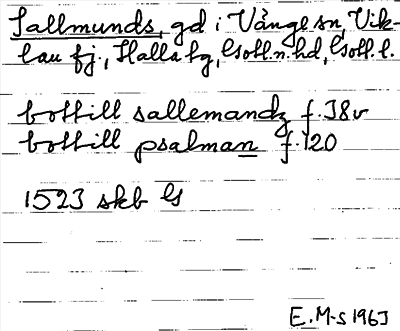 Sallmunds, gd i Vänge sn, Vik-
lau fj., Halla tg, Gotl.n.hd, Gotl.l.
bottill sallemandz f.38v
bottill psalman f.120
1523 skb G
E.M-s 1963